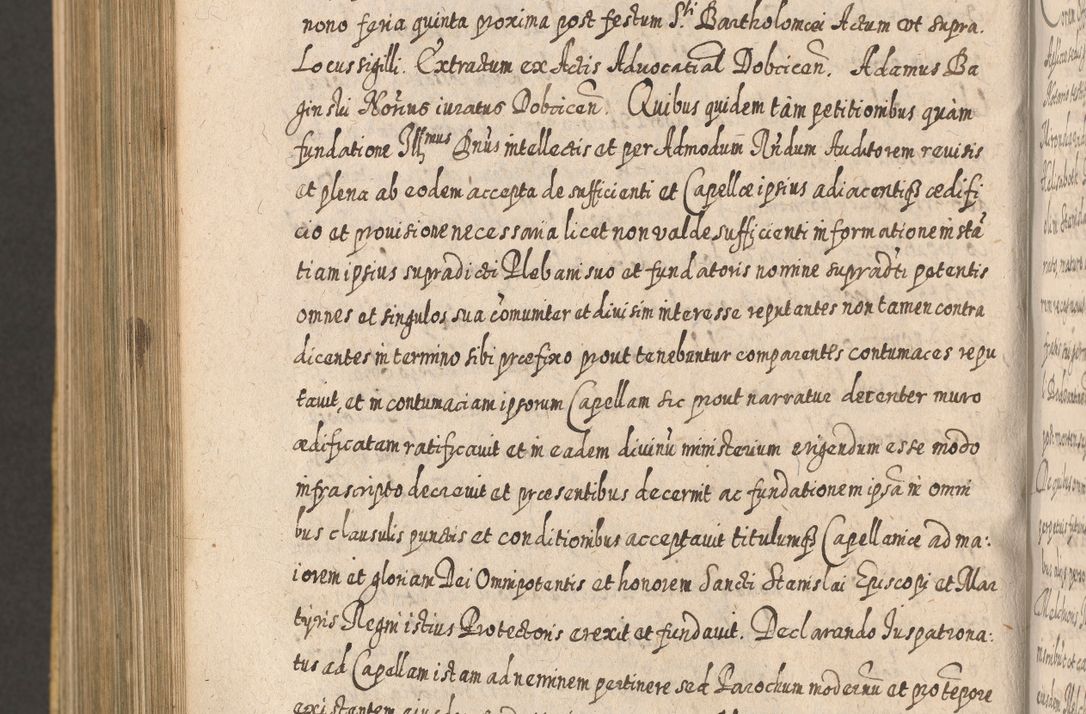 nono feria quinta proxima post festum S.ti Bartholomæi Actum ut supra.
Locus sigilli. Extractum ex Actis Advocatial Dobcicen̄. Adamus Ba
ginski Nōrius iuratus Dobcicen̄. Quibus quidem tàm petitionibus quàm
fundatione Ill.mus Dn̄us intellectis et per Admodum Rn̄dum Auditorem revisis
et plena ab eodem accepta de sufficienti et Capellæ ipsius adiacentisq̄ ædifi
cio et provisione necessaria licet non valde sufficienti informatione in stā
tiam ipsius supradicti Plebani suo et fundatoris nomine supradc̄ti petentis
omnes et singulos sua cōmuniter et divisim interesse reputantes non tamen contra
dicentes in termino sibi præfixo prout tenebantur comparentes contumaces repu
tavit, et in contumaciam ipsorum Capellam sic prout narratur decenter muro
ædificatam ratificavit et in eadem divinū ministerium erigendum esse modo
infrascripto decrevit et præsentibus decernit ac fundationem ipsā in omni
bus clausulis punctis et conditionibus acceptavit titulumq̄ Capellaniæ ad ma:
iorem et gloriam Dei Omnipotentis et honorem Sancti Stanislai Episcopi et Mar
tyris Regni istius Protectoris erexit et fundavit. Declarando Iuspatrona:
tus ad Capellam istam ad neminem pertinere sed Parochum modernū et pro tēpore
existentem